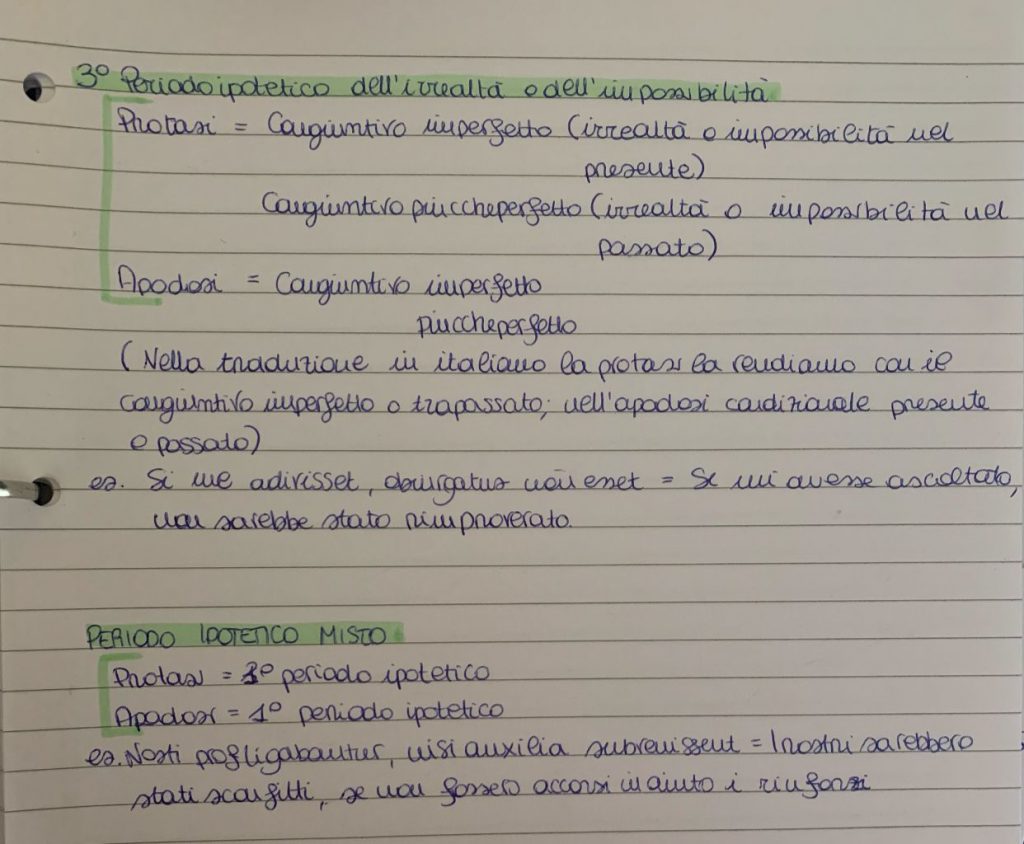 3° Periodo ipotetico dell'irrealtà o dell'impossibilità
Protasi = Congiuntivo imperfetto (irrealtà o impossibilità nel
presente)
Congiuntivo piuccheperfetto (irrealtà o impossibilità nel
passato)
Apodosi = Congiuntivo imperfetto
piuccheperfetto
(Nella traduzione in italiano la protasi la rendiamo con il
congiuntivo imperfetto o trapassato; nell'apodosi condizionale presente
e passato)
es. Si me adivisset, obiurgatus non esset = Se mi avesse ascoltato,
non sarebbe stato rimproverato.
PERIODO IPOTETICO MISTO
Protasi = 3° periodo ipotetico
Apodosi = 1° periodo ipotetico
es. Nosti profligabantur, nisi auxilia subvenissent = I nostri sarebbero
stati sconfitti, se non fossero accorsi in aiuto i rinforzi